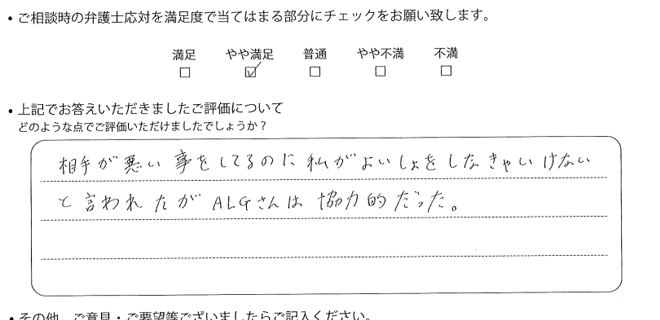 • ご相談時の弁護士応対を満足度で当てはまる部分にチェックをお願い致します。
満足 やや満足 普通 やや不満 不満
□ ☑ □ □ □
• 上記でお答えいただきましたご評価について
どのような点でご評価いただけましたでしょうか？
相手が悪い事をしてるのに 私がよいしょをしなきゃいけない
と言われたが ALGさんは 協力的だった。
• その他、ご意見・ご要望等ございましたらご記入ください。